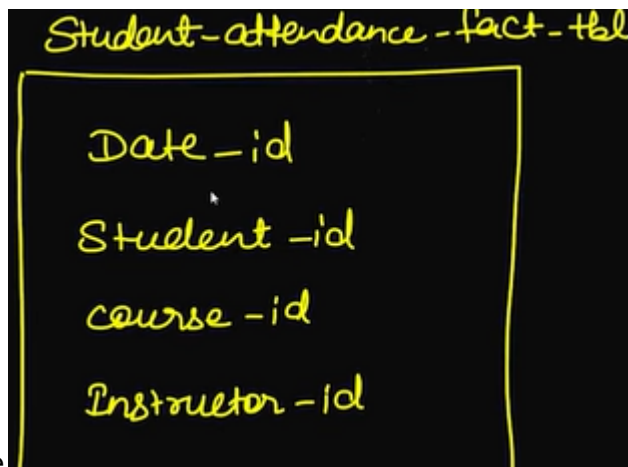 Student-attendance-fact-tbl
Date-id
Student-id
course-id
Instructor-id